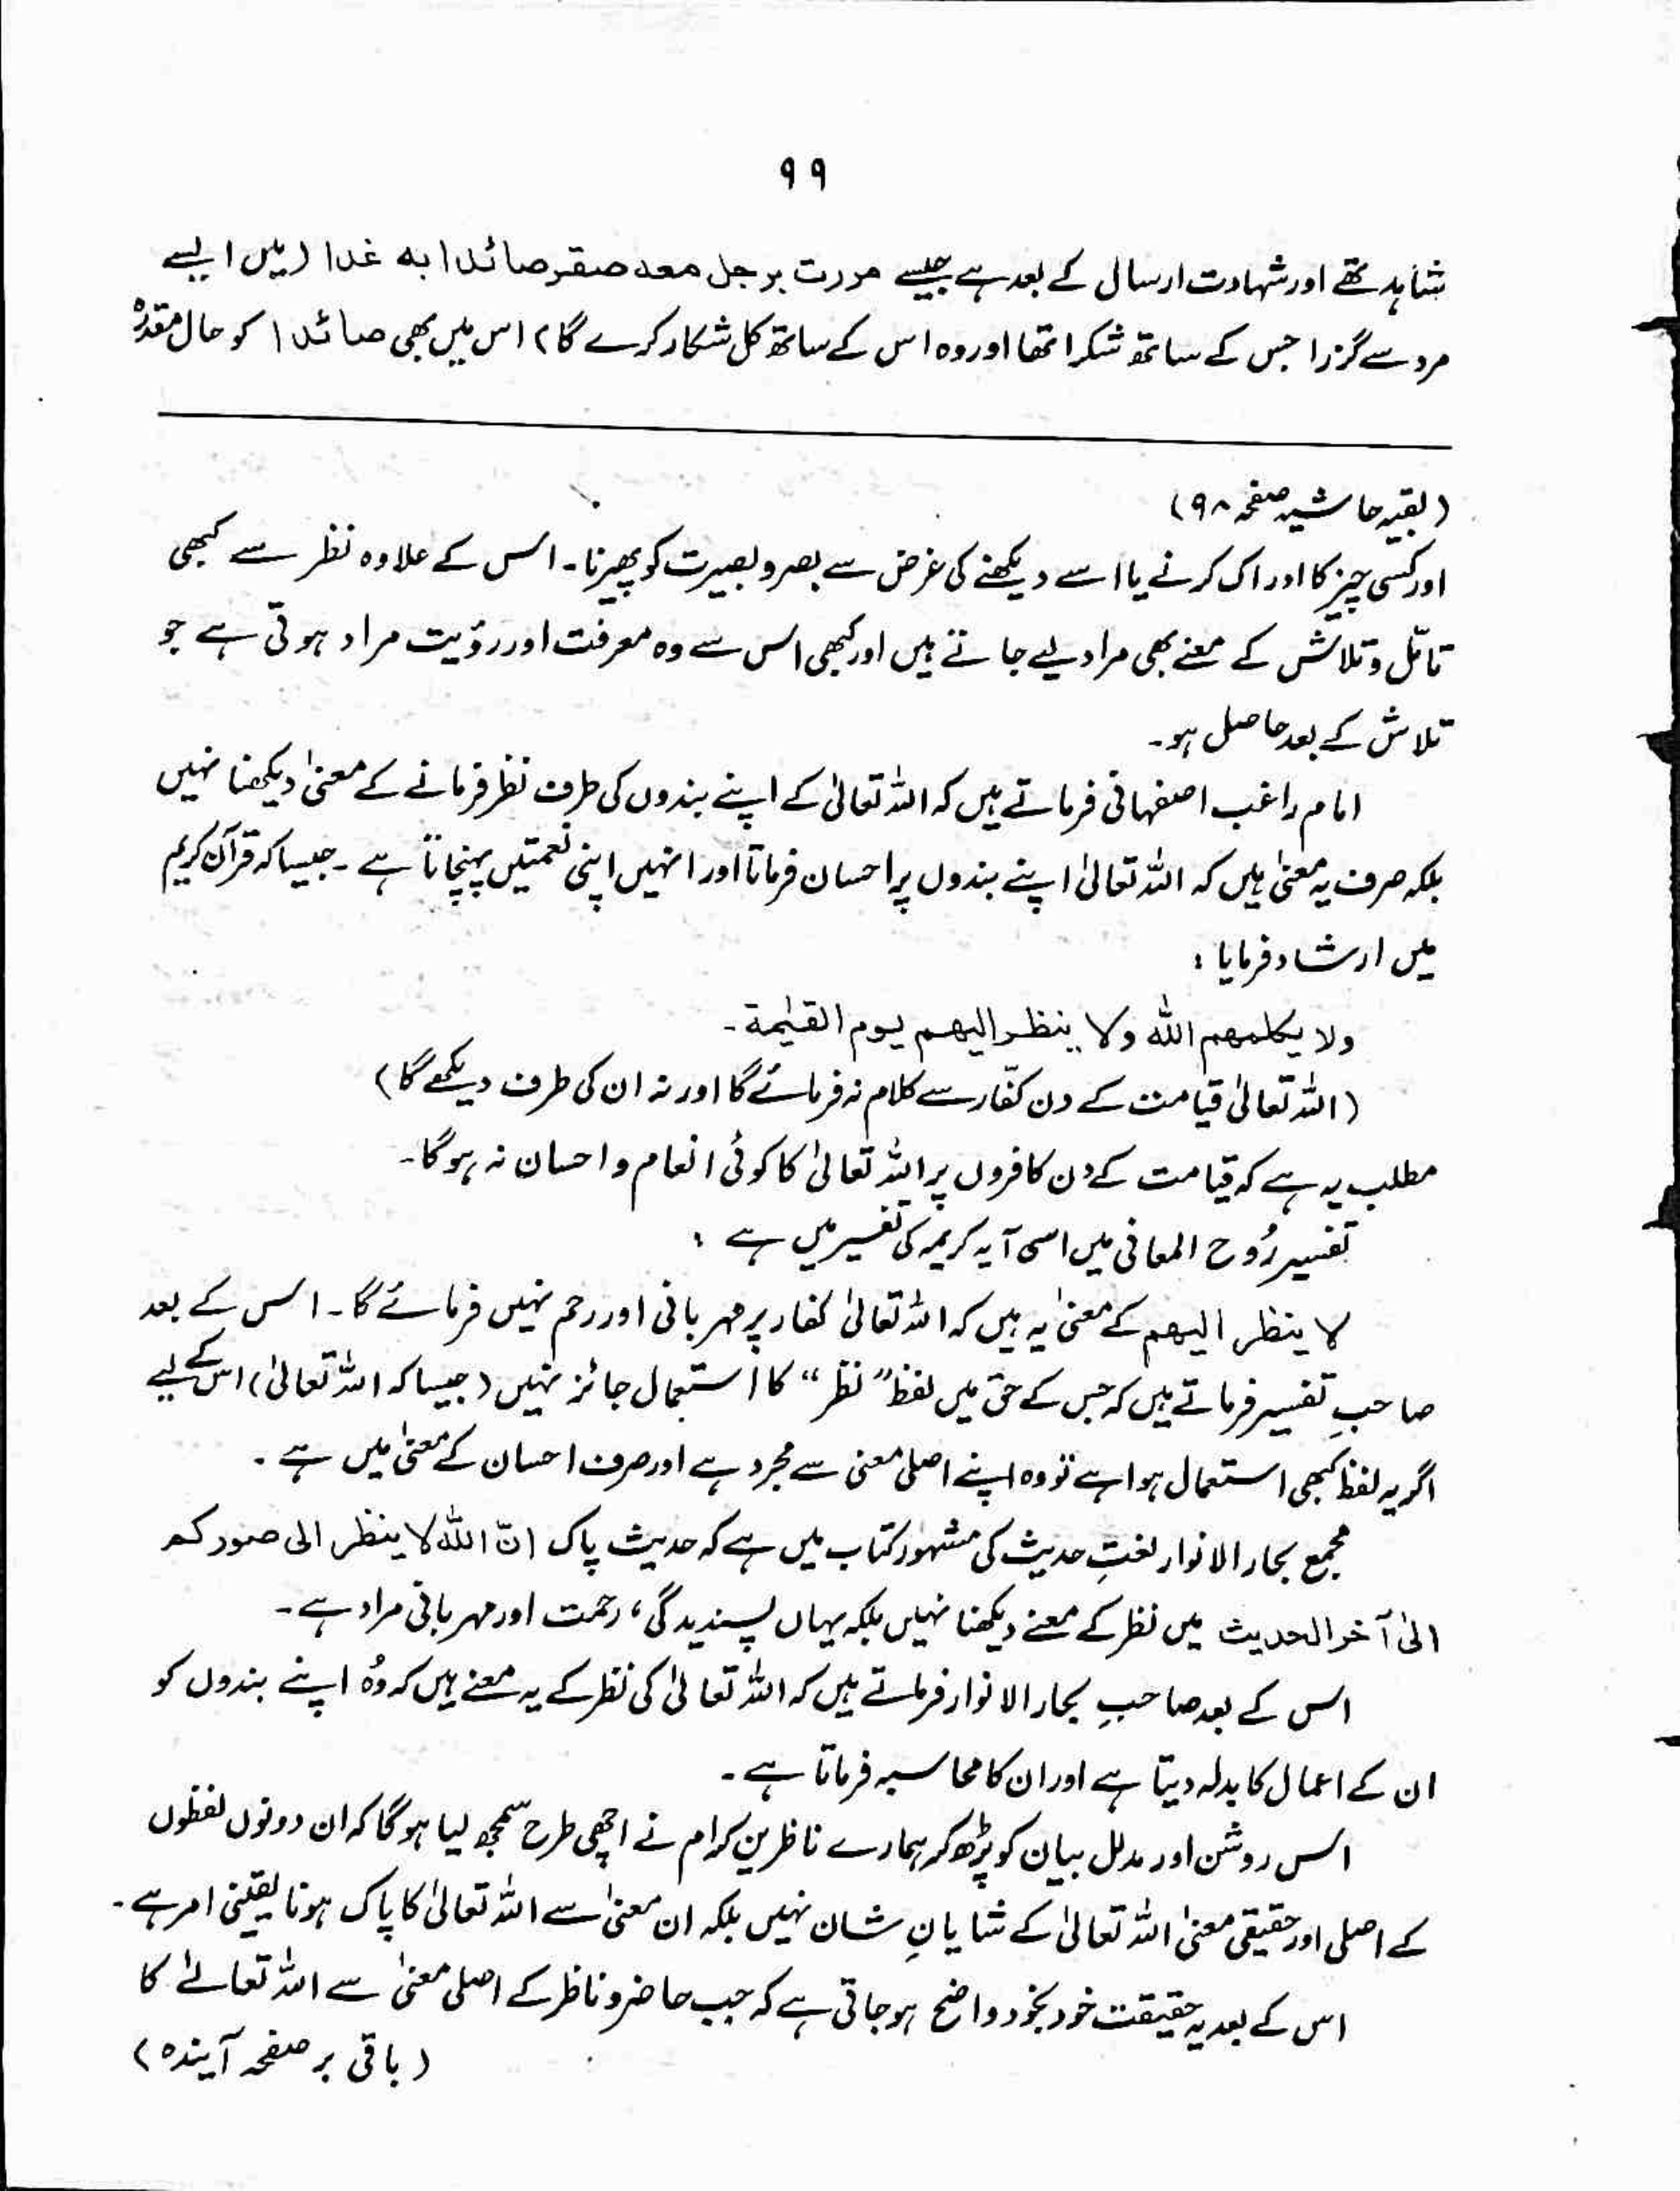 ۹۹
شاہد تھے اور شہادت ارسال کے بعد ہے جیسے مررت برجل معہ صقر صائدا بہ غدا (میں ایسے
مرد سے گزرا جس کے ساتھ شکرا تھا اور وہ اس کے ساتھ کل شکار کرے گا) اس میں بھی صائدا کو حال مقدرہ
(بقیہ حاشیہ صفحہ ۹۸)
اور کسی چیز کا ادراک کرنے یا اسے دیکھنے کی غرض سے بصر و بصیرت کو پھیرنا۔ اس کے علاوہ نظر سے کبھی
تامّل و تلاش کے معنے بھی مراد لیے جاتے ہیں اور کبھی اس سے وہ معرفت اور رؤیت مراد ہوتی ہے جو
تلاش کے بعد حاصل ہو۔
امام راغب اصفہانی فرماتے ہیں کہ اللہ تعالیٰ کے اپنے بندوں کی طرف نظر فرمانے کے معنیٰ دیکھنا نہیں
بلکہ صرف یہ معنیٰ ہیں کہ اللہ تعالیٰ اپنے بندوں پر احسان فرماتا اور انہیں اپنی نعمتیں پہنچاتا ہے۔ جیسا کہ قرآن کریم
میں ارشاد فرمایا :
ولا یکلمھم اللہ ولا ینظر الیھم یوم القیٰمة۔
(اللہ تعالیٰ قیامت کے دن کفّار سے کلام نہ فرمائے گا اور نہ ان کی طرف دیکھے گا)
مطلب یہ ہے کہ قیامت کے دن کافروں پر اللہ تعالیٰ کا کوئی انعام و احسان نہ ہوگا۔
تفسیر رُوح المعانی میں اسی آیہ کریمہ کی تفسیر میں ہے :
لا ینظر الیھم کے معنیٰ یہ ہیں کہ اللہ تعالیٰ کفار پر مہربانی اور رحم نہیں فرمائے گا۔ اس کے بعد
صاحبِ تفسیر فرماتے ہیں کہ جس کے حق میں لفظ "نظر" کا استعمال جائز نہیں (جیسا کہ اللہ تعالیٰ) اس کے لیے
اگر یہ لفظ کبھی استعمال ہوا ہے تو وہ اپنے اصلی معنی سے مجرد ہے اور صرف احسان کے معنیٰ میں ہے۔
مجمع بحار الانوار لغتِ حدیث کی مشہور کتاب میں ہے کہ حدیث پاک انّ اللہ لا ینظر الی صورکم
الیٰ آخر الحدیث میں نظر کے معنے دیکھنا نہیں بلکہ یہاں پسندیدگی، رحمت اور مہربانی مراد ہے۔
اس کے بعد صاحبِ بحار الانوار فرماتے ہیں کہ اللہ تعالیٰ کی نظر کے یہ معنے ہیں کہ وُہ اپنے بندوں کو
ان کے اعمال کا بدلہ دیتا ہے اور ان کا محاسبہ فرماتا ہے۔
اس روشن اور مدلل بیان کو پڑھ کر ہمارے ناظرین کرام نے اچھی طرح سمجھ لیا ہوگا کہ ان دونوں لفظوں
کے اصلی اور حقیقی معنیٰ اللہ تعالیٰ کے شایانِ شان نہیں بلکہ ان معنیٰ سے اللہ تعالیٰ کا پاک ہونا یقینی امر ہے۔
اس کے بعد یہ حقیقت خود بخود واضح ہو جاتی ہے کہ جب حاضر و ناظر کے اصلی معنیٰ سے اللہ تعالےٰ کا
(باقی بر صفحہ آیندہ)